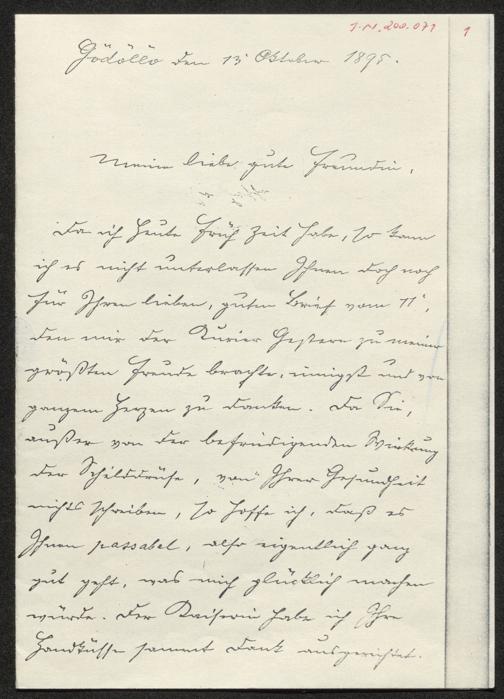 I.N. 200.071
1
Gödöllö den 13 Oktober 1895.
Meine liebe gute Freundin,
Da ich heute früh Zeit habe, so kann
ich es nicht unterlassen Ihnen doch noch
für Ihren lieben, guten Brief vom 11t,
den mir der Kurier Gestern zu meiner
größten Freude brachte, innigst und von
ganzem Herzen zu danken. Da Sie,
außer von der befriedigenden Wirkung
der Schilddrüse, von Ihrer Gesundheit
nichts schreiben, so hoffe ich, daß es
Ihnen passabel, also eigentlich ganz
gut geht, was mich glücklich machen
würde. Der Kaiserin habe ich Ihre
Handküsse sammt Dank ausgerichtet.